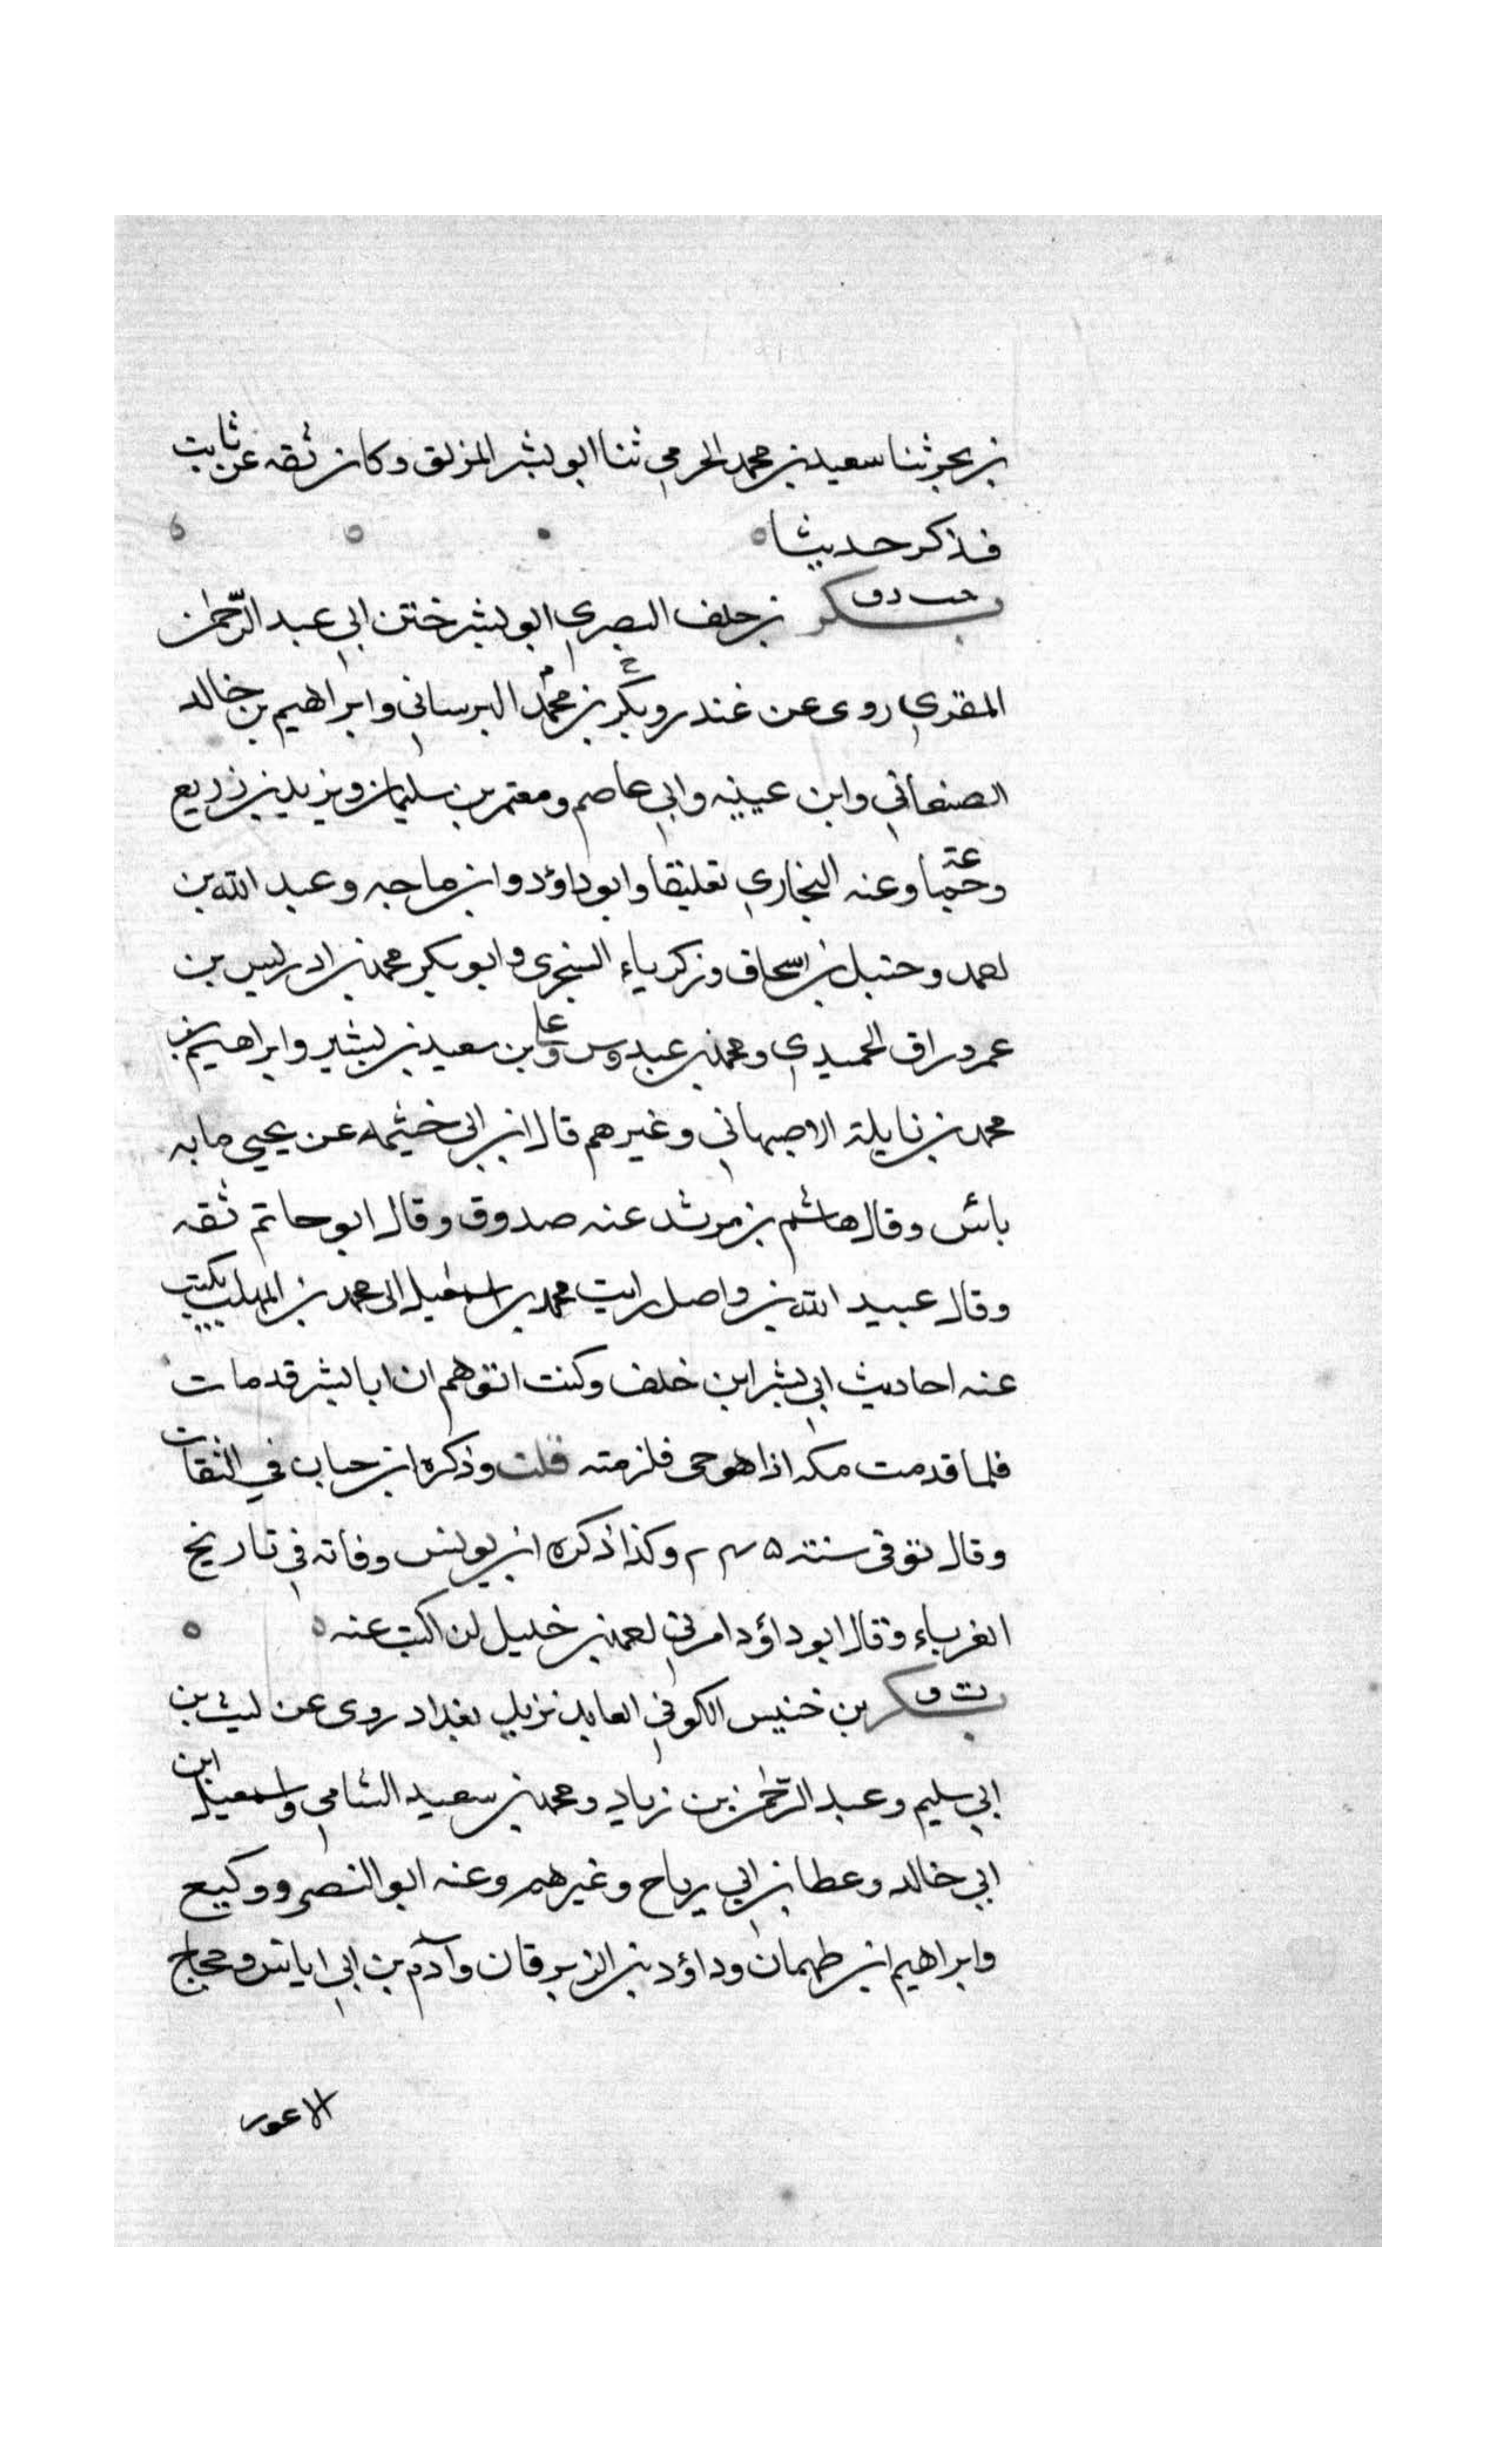 بن بحر ثنا سعيد بن محمد الجرمي ثنا ابو بشر المزلق وكان ثقه عن ثابت
فذكر حديثا
خت د ق
بكر بن خلف البصري ابو بشر ختن ابي عبد الرحمن
المقري روى عن غندر وبكر بن محمد البرساني وابراهيم بن خالد
الصنعاني وابن عيينه وابي عاصم ومعتمر بن سليمان ويزيد بن زريع
وعنه البخاري تعليقا وابو داؤد وابن ماجه وعبد الله بن
احمد وحنبل بن اسحاق وزكرياء السجزى وابو بكر محمد بن ادريس بن
عمر وراق الحميدي ومحمد بن عبدوس وعلى بن سعيد بن بشير وابراهيم بن
محمد بن نايلة الاصبهاني وغيرهم قال ابن ابي خيثمه عن يحيى ما به
بائس وقال هاشم بن مرثد عنه صدوق وقال ابو حاتم ثقه
وقال عبيد الله بن واصل رايت محمد بن اسمعيل الى محمد بن المهلب يكتب
عنه احاديث ابي بشر ابن خلف وكنت اتوهم ان ابا بشر قد مات
فلما قدمت مكه اذا هو حى فلزمته قلت وذكره ابن حبان في الثقات
وقال توفى سنته وكذا ذكره ابن يونس وفاته في تاريخ
الغرباء وقال ابو داؤد امرني احمد بن خليل لن اكتب عنه
ت ق
بكر بن خنيس الكوفي العابد نزيل بغداد روى عن ليث بن
ابي سليم وعبد الرحمن بن زياد ومحمد بن سعيد الشامي واسمعيل ابن
ابي خالد وعطا بن ابي رباح وغيرهم وعنه ابو النصر ووكيع
وابراهيم ابن طهمان وداؤد بن الزبرقان وآدم بن ابي اياس وحجاج
الاعور